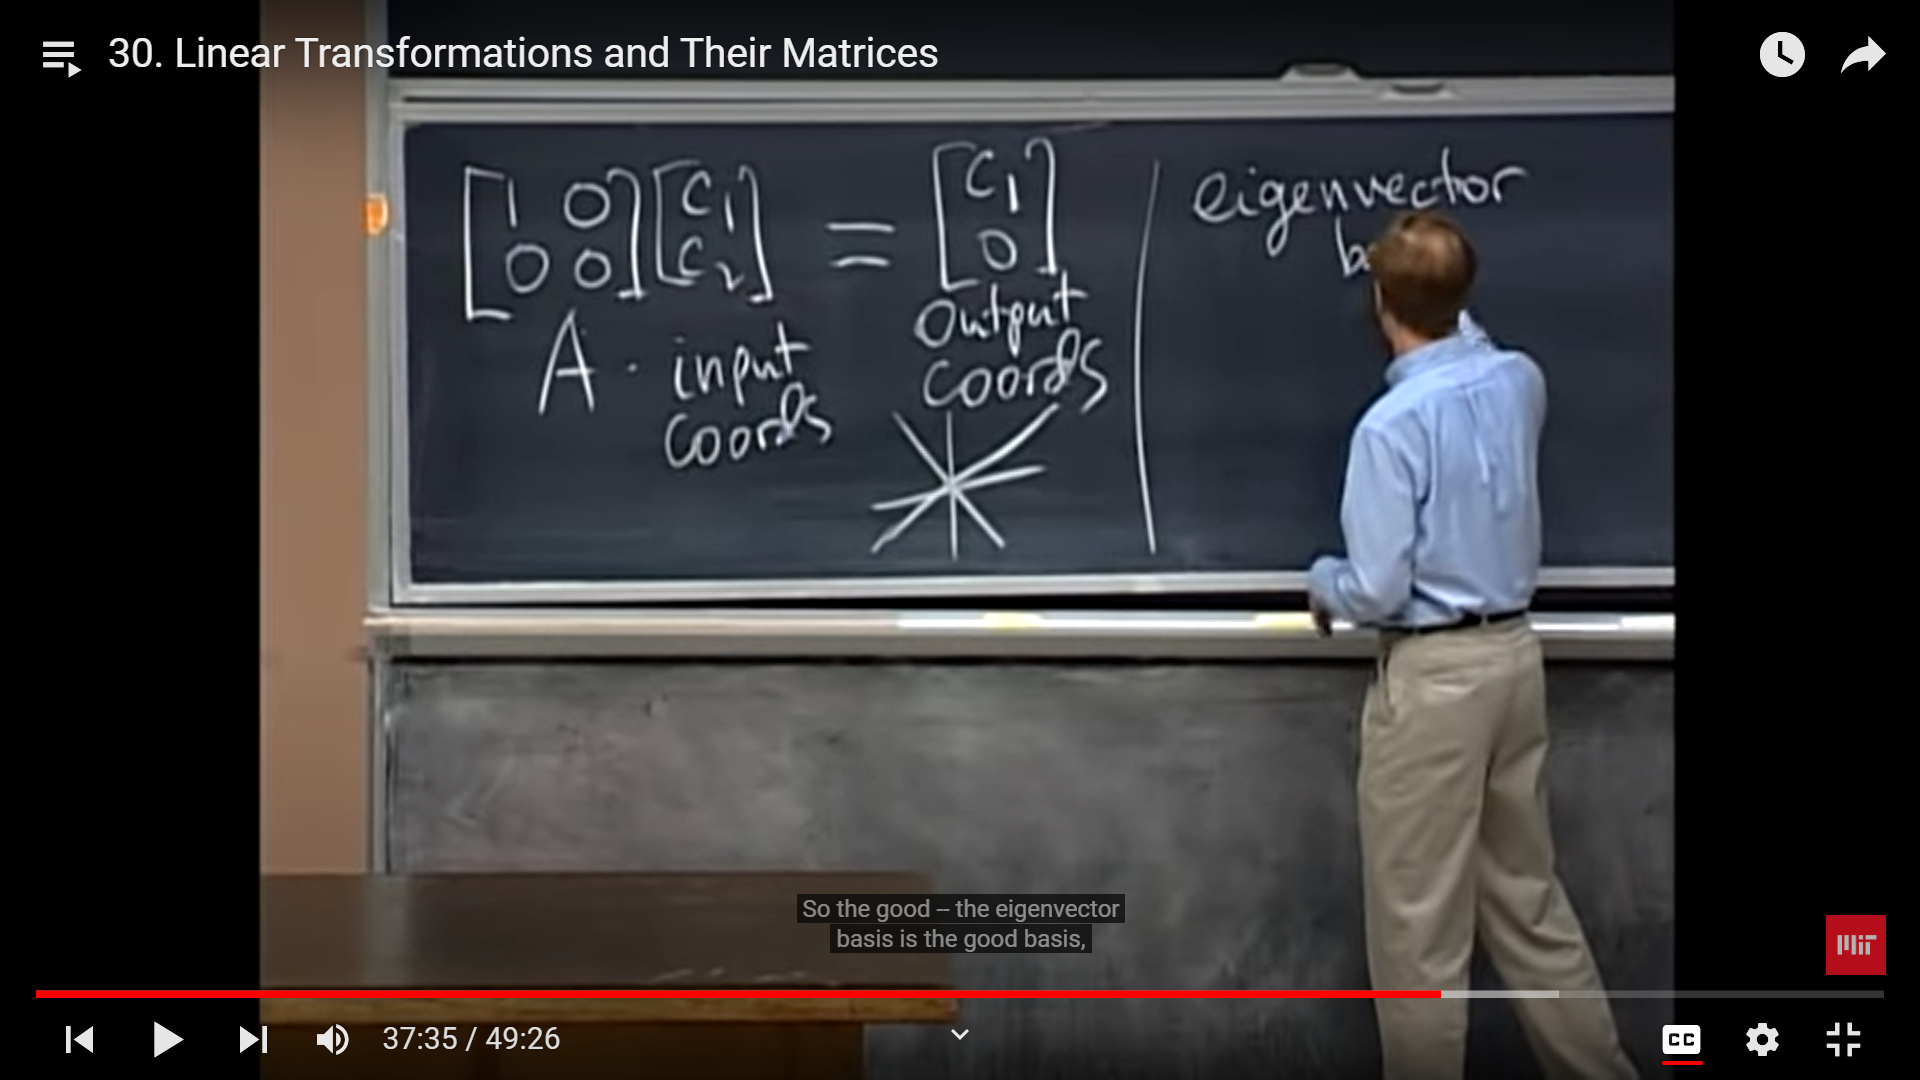 30. Linear Transformations and Their Matrices
[1 0] [C1] = [C1]
[0 0] [C2] [0]
A · input coords
Output coords
eigenvector
So the good -- the eigenvector
basis is the good basis,
MIT
37:35 / 49:26
CC